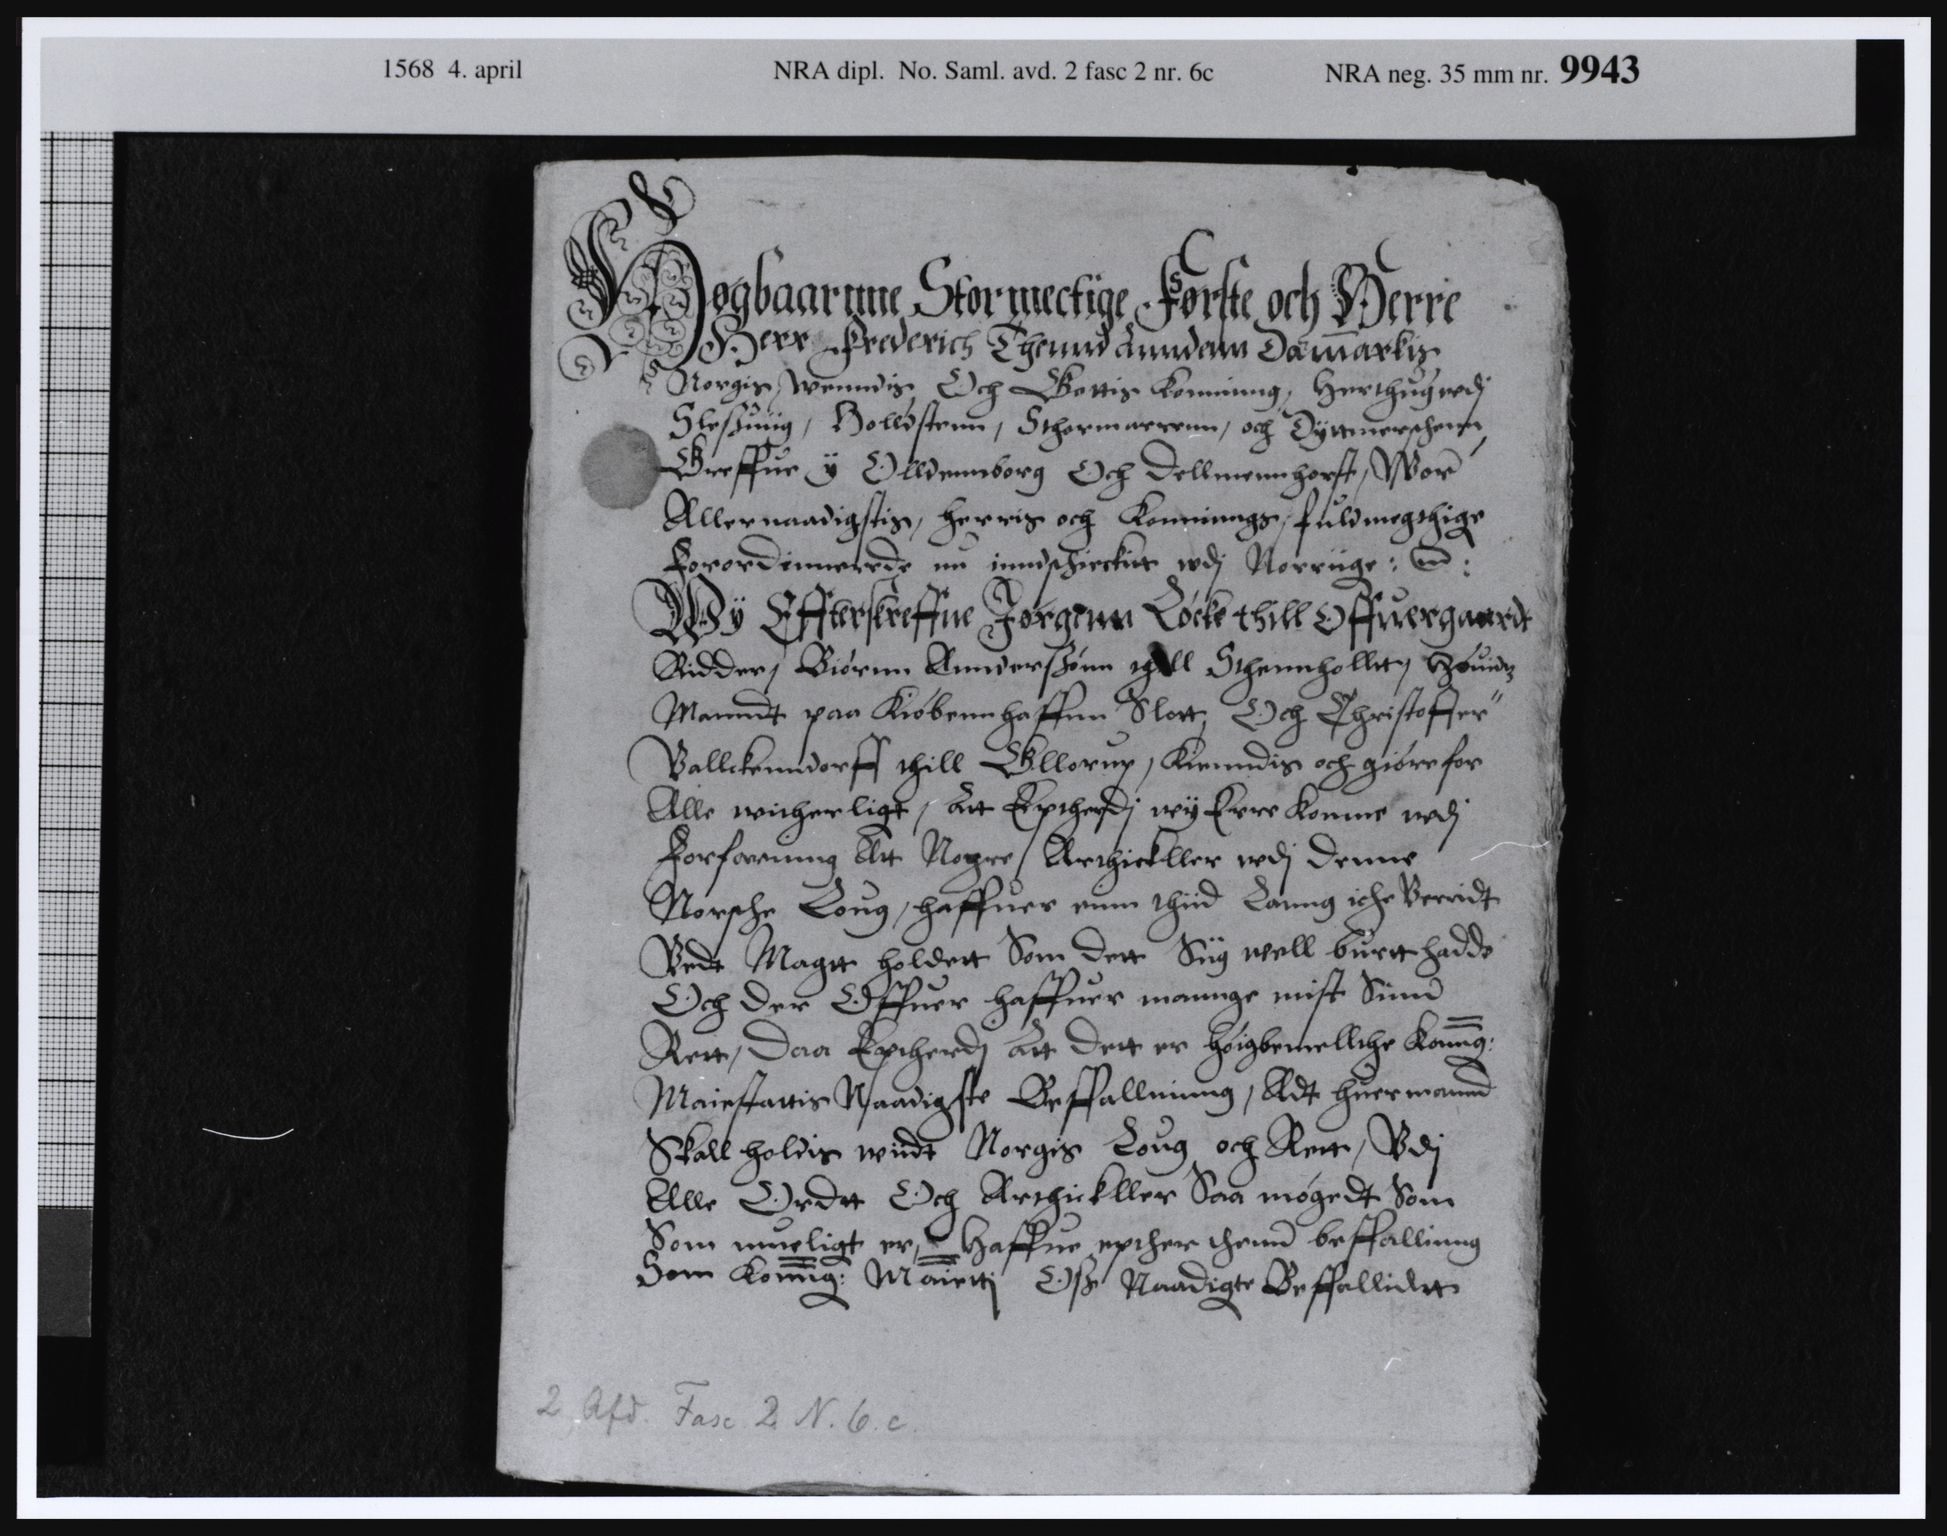 1568 4. april NRA dipl. No. Saml. avd. 2 fasc 2 nr. 6c NRA neg. 35 mm nr. 9943
Høgbaarnne Stormectige Første och Herre
Herr Frederich Thennd Anndenn Danmarkis
Norgis, Wenndis Och Gottis Konning, Herthug vdj
Slesßuiig, Holldstenn, Sthormarrenn, och Dyttmerschenn
Greffue ÿ Olldennborg Och Dellmennhorst, Wor
Allernaadigstis, herris och Konnings, fuldmegthige
Forordinnerede nu inndschicket vdj Norriige:
Wÿ Effterskreffne Jørgenn Løcke thill Offuergaardt
Ridder, Biørnn Annderßønn thill Sthennhollt, Høuidz
Manndt paa Kiøbennhaffnn Slott, Och Christoffer
Vallckenndorff thill Gllorup, Kienndis och giøre for
Alle witherligt, att Eptherdj wÿ Erre Komne vdj
Forfarning Att Nogre Arthickller vdj denne
Norsche Loug, haffuer enn thiid Lanng iche Veridt
Vedt Magtt holdett Som dett Siig well burtt hadde
Och der Offuer haffuer mannge mist Sinnd
Rett, Daa Eptherdj att dett er høigbemellthe Konng:
Maiestattis Naadigste Beffallning, Adt huermannd
Skall holdis widt Norgis Loug och Rett, Vdj
Alle Ordtt Och Arthickller Saa møgedt Som
Som mueligt er, Haffue epther thend beffallinng
Som Konng: Maiettj Oß Naadigte Beffallidtt
2 Afd. Fasc. 2 N. 6. c.